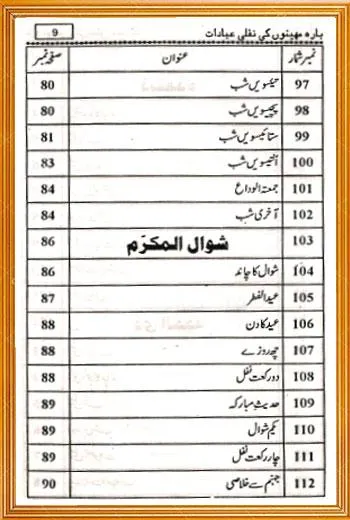 بارہ مہینوں کی نفلی عبادات 9
نمبر شمار عنوان صفحہ نمبر
97 تئیسویں شب 80
98 پچیسویں شب 80
99 ستائیسویں شب 81
100 انتیسویں شب 83
101 جمعتہ الوداع 84
102 آخری شب 84
103 شوال المکرّم 86
104 شوال کا چاند 86
105 عیدالفطر 87
106 عید کا دن 88
107 چھ روزے 88
108 دو رکعت نفل 88
109 حدیثِ مبارکہ 89
110 یکم شوال 89
111 چار رکعت نفل 89
112 جہنم سے خلاصی 90